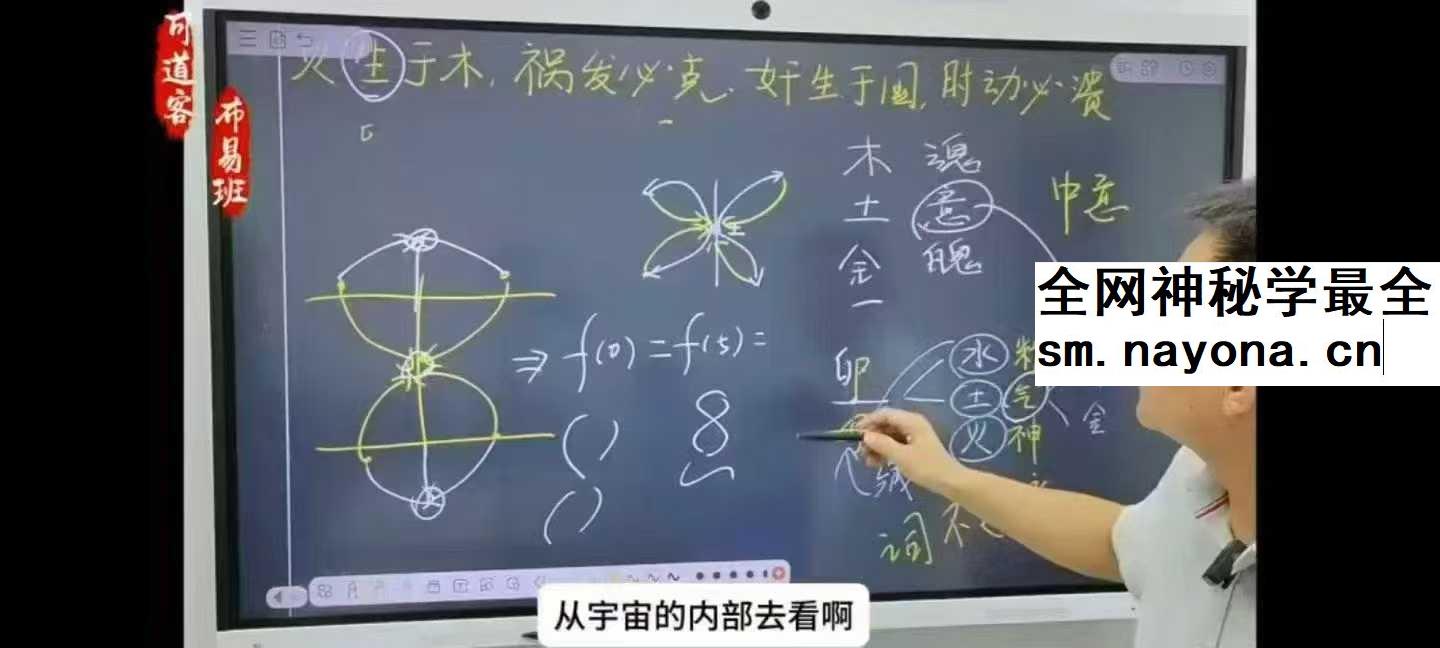 可道客
布易班
火生于木，祸发必克．奸生于国，时动必溃
木 魂
土 意
金 魄
中意
全网神秘学最全
sm.nayona.cn
⇒ f(0)=f(5)=
8
卵
水
土 气
火 神
金
词不
从宇宙的内部去看啊